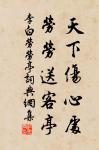 天下傷心處
勞勞送客亭
李白勞勞亭詞典網集